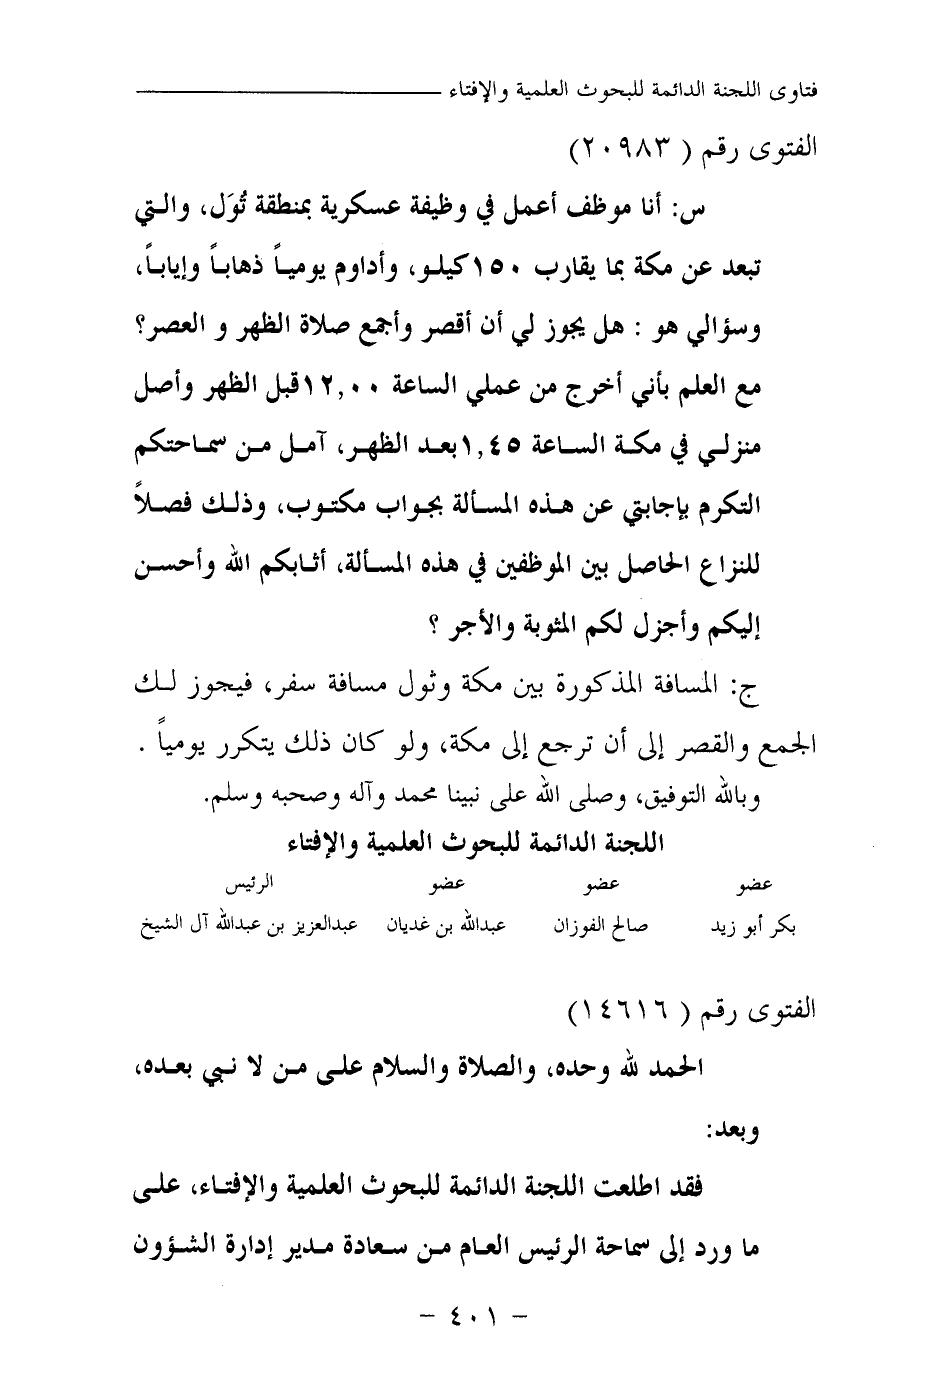 فتاوى اللجنة الدائمة للبحوث العلمية والإفتاء
الفتوى رقم ( ٢٠٩٨٣)
س: أنا موظف أعمل في وظيفة عسكرية بمنطقة ثُوَل، والتي
تبعد عن مكة بما يقارب ١٥٠كيلو، وأداوم يومياً ذهاباً وإياباً،
وسؤالي هو : هل يجوز لي أن أقصر وأجمع صلاة الظهر و العصر؟
مع العلم بأني أخرج من عملي الساعة ١٢,٠٠قبل الظهر وأصل
منزلي في مكة الساعة ١,٤٥بعد الظهر، آمل من سماحتكم
التكرم بإجابتي عن هذه المسألة بجواب مكتوب، وذلك فصلاً
للنزاع الحاصل بين الموظفين في هذه المسألة، أثابكم الله وأحسن
إليكم وأجزل لكم المثوبة والأجر ؟
ج: المسافة المذكورة بين مكة وثول مسافة سفر، فيجوز لك
الجمع والقصر إلى أن ترجع إلى مكة، ولو كان ذلك يتكرر يومياً .
وبالله التوفيق، وصلى الله على نبينا محمد وآله وصحبه وسلم.
اللجنة الدائمة للبحوث العلمية والإفتاء
عضو عضو عضو الرئيس
بكر أبو زيد صالح الفوزان عبدالله بن غديان عبدالعزيز بن عبدالله آل الشيخ
الفتوى رقم ( ١٤٦١٦)
الحمد لله وحده، والصلاة والسلام على من لا نبي بعده،
وبعد:
فقد اطلعت اللجنة الدائمة للبحوث العلمية والإفتاء، على
ما ورد إلى سماحة الرئيس العام من سعادة مدير إدارة الشؤون
- ٤٠١ -